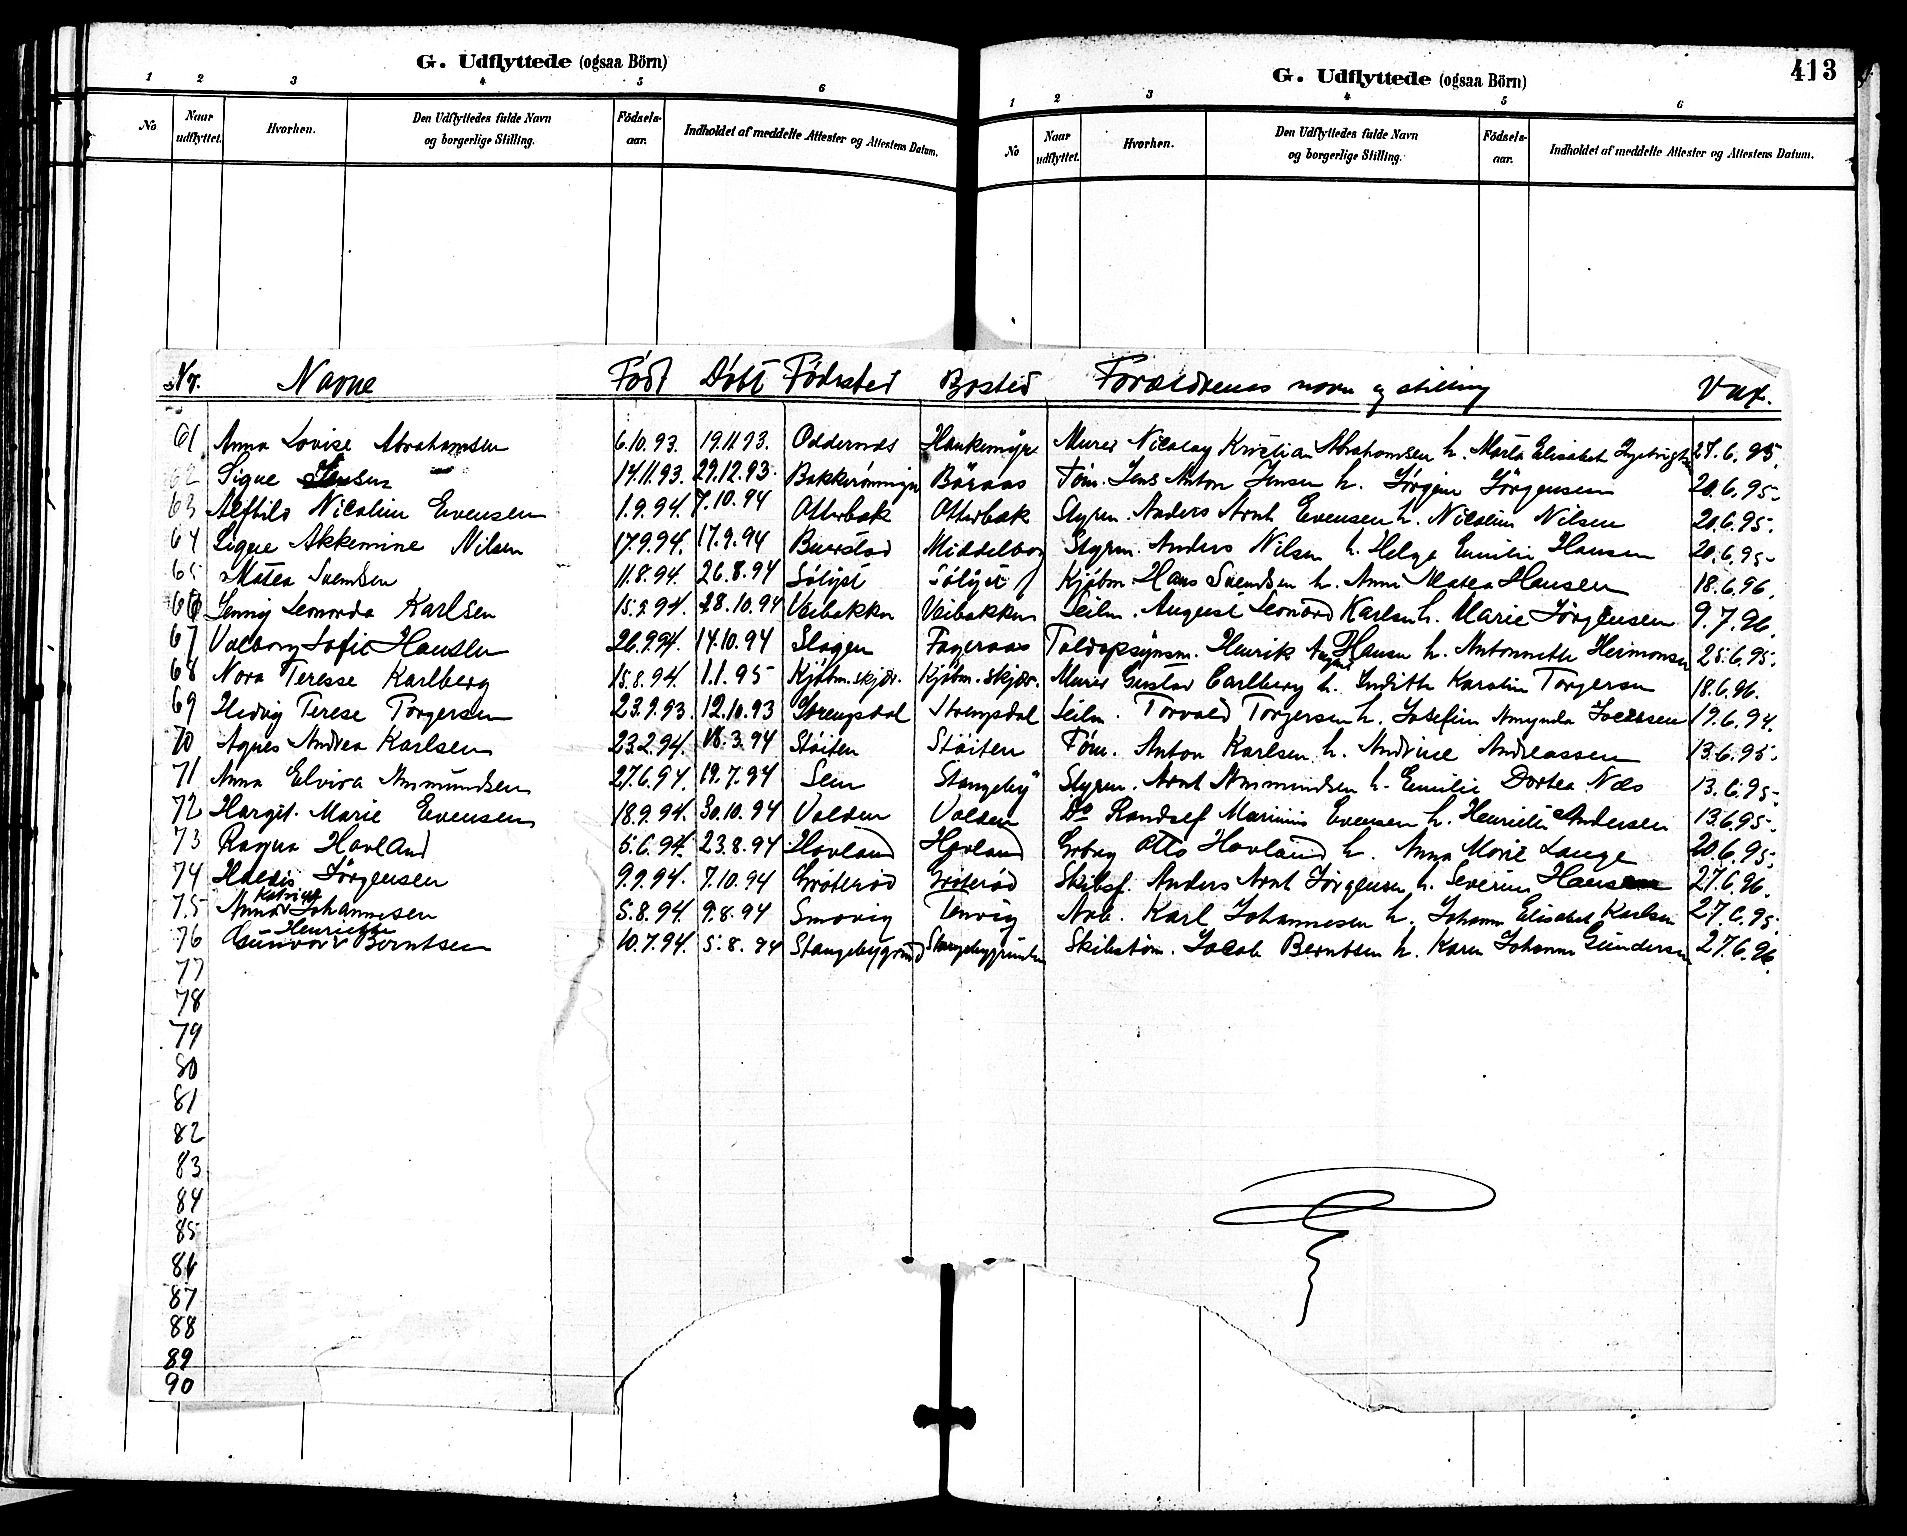 G. Udflyttede (ogsaa Börn)
1 2 3 4 5 6
No Naar udflyttet. Hvorhen. Den Udflyttedes fulde Navn og borgerlige Stilling. Fødselsaar. Indholdet af meddelte Attester og Attestens Datum.
413
G. Udflyttede (ogsaa Börn)
1 2 3 4 5 6
No Naar udflyttet. Hvorhen. Den Udflyttedes fulde Navn og borgerlige Stilling. Fødselsaar. Indholdet af meddelte Attester og Attestens Datum.
Nr. Navne Født Døbt Fødested Bosted Forældrenes navn og stilling Vax.
61 Anna Lovise Abrahamsen 6.10.93. 19.11.93. Oddernæs Haukemyr Murer Nicolay Kristian Abrahamsen h. Marta Elisabet 27.6.95.
62 Signe Jensen 14.11.93. 29.12.93. Bakkerønningen Böraas Töm. Jens Anton Jensen h. Jørgine Jörgensen 20.6.95.
63 Alfhild Nicoline Evensen 1.9.94. 7.10.94 Otterbæk Otterbæk Styrm. Anders Arnt Evensen h. Nicoline Nilsen 20.6.95.
64 Signe Akkemine Nilsen 17.9.94. 17.9.94 Buerstad Middelborg Styrm. Anders Nilsen h. Helga Emilie Hansen 20.6.95
65 Matea Svendsen 11.8.94. 26.8.94 Sölyst Sölyst Kjøbm Hans Svendsen h. Anne Matea Hansen 18.6.96.
66 Jenny Leonarda Karlsen 15.2.94. 28.10.94 Veibakken Veibakken Seilm. August Leonard Karlsen h. Marie Jørgensen 9.7.96.
67 Valborg Sofie Hansen 26.9.94. 14.10.94 Slagen Fageraas Toldopsynsm. Henrik August Hansen h. Antonnette Heimonsen 25.6.95.
68 Nora Teresse Karlberg 15.8.94. 1.1.95 Kjøbm.skjær. Kjøbm.skjær. Murer Gustav Carlberg h. Indithe Karoline Torgersen 18.6.96.
69 Hedvig Terese Torgersen 23.9.93. 12.10.93 Strengsdal Strengsdal Seilm. Torvald Torgersen h. Josefine Amynda Jacobsen 19.6.94.
70 Agnes Andrea Karlsen 23.2.94. 18.3.94 Støiten Støiten Töm. Anton Karlsen h. Andrine Andreassen 13.6.95.
71 Anna Elvira Ammundsen 27.6.94. 19.7.94 Sem Stangeby Styrm. Arnt Ammundsen h. Emilie Dortea Næs 13.6.95.
72 Margit Marie Evensen 18.9.94. 30.10.94 Valden Valden Do Randolf Marinius Evensen h. Henriette Andersen 13.6.95.
73 Ragna Havland 5.6.94. 23.8.94 Havland Havland Grbrg Otto Havland h. Anna Marie Lange 20.6.95.
74 Haldis Jörgensen 9.9.94. 7.10.94 Gröterød Gröterød Skibsf. Anders Arnt Jörgensen h. Severine Hansen 27.6.96.
75 Anna Katrine Johannesen 5.8.94. 9.8.94 Smovig Tenvig Arb. Karl Johannesen h. Johanne Elisabet Karlsen 27.6.95.
76 Gunvor Henriette Berntsen 10.7.94. 5.8.94 Stangebygrund Stangebygrunden Skibstöm. Jacob Berntsen h. Karen Johanne Gundersen 27.6.96.
77
78
79
80
81
82
83
84
85
86
87
88
89
90